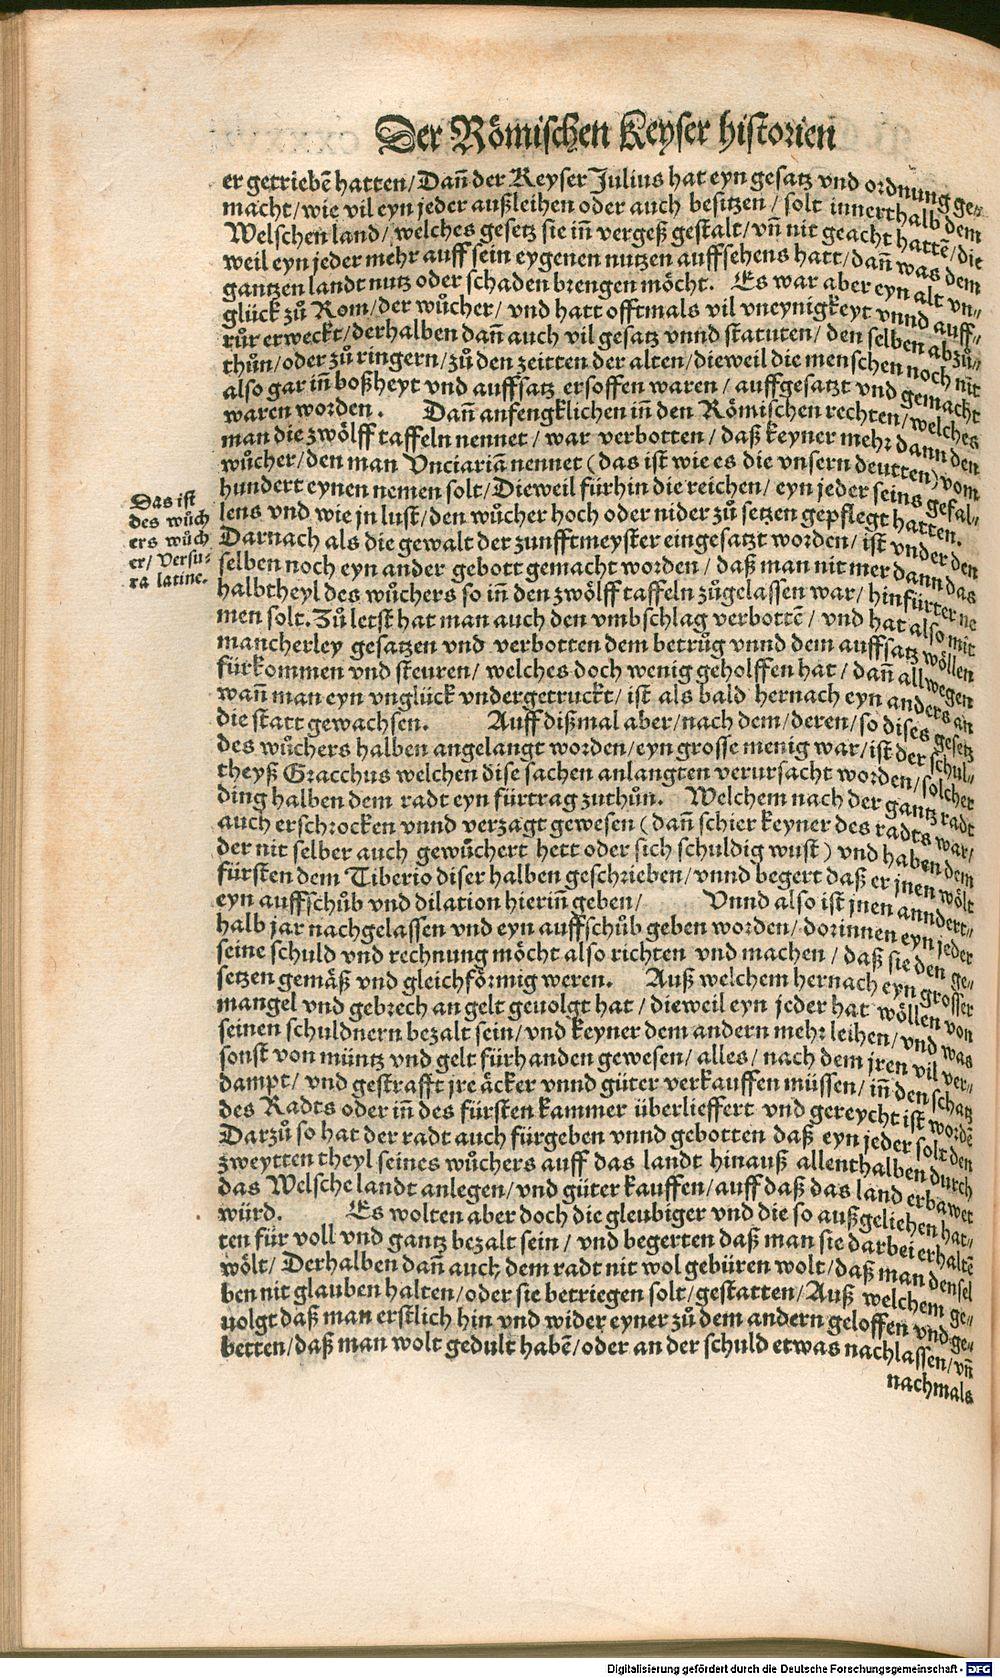 Der Römischen Keyser historien
er getriebē hatten/Dañ der Keyser Julius hat eyn gesatz vnd ordnung ge⸗
macht/wie vil eyn jeder außleihen oder auch besitzen/solt innerthalb dem
Welschen land/welches gesetz sie iñ vergeß gestalt/vñ nit geacht hattē/die
weil eyn jeder mehr auff sein eygenen nutzen auffsehens hatt/dañ was dem
gantzen landt nutz oder schaden brengen möcht. Es war aber eyn alt vn⸗
glück zů Rom/der wůcher/vnd hatt offtmals vil vneynigkeyt vnnd auff⸗
růr erweckt/derhalben dañ auch vil gesatz vnnd statuten/den selben abzů⸗
thůn/oder zů ringern/zů den zeitten der alten/dieweil die menschen noch nit
also gar iñ boßheyt vnd auffsatz ersoffen waren/auffgesatzt vnd gemacht
waren worden. Dañ anfengklichen iñ den Römischen rechten/welches
man die zwölff taffeln nennet/war verbotten/daß keyner mehr dann den
wůcher/den man Vnciariã nennet (das ist wie es die vnsern deutten) vom
hundert eynen nemen solt/Dieweil fürhin die reichen/eyn jeder seins gefal⸗
lens vnd wie jn lust/den wůcher hoch oder nider zů setzen gepflegt hatten.
Das ist
des wůch
ers wůch
er/Versu⸗
ra latine.
Darnach als die gewalt der zunfftmeyster eingesatzt worden/ist vnder den
selben noch eyn ander gebott gemacht worden/daß man nit mer dann das
halbtheyl des wůchers so iñ den zwölff taffeln zůgelassen war/hinfürter ne
men solt. Zů letst hat man auch den vmbschlag verbottē/vnd hat also mit
mancherley gesatzen vnd verbotten dem betrůg vnnd dem auffsatz wöllen
fürkommen vnd steuren/welches doch wenig geholffen hat/dañ allwegen
wañ man eyn vnglück vndergetruckt/ist als bald hernach eyn anders an
die statt gewachsen. Auff dißmal aber/nach dem/deren/so dises gesetz
des wůchers halben angelangt worden/eyn grosse menig war/ist der schul⸗
theyß Gracchus welchen dise sachen anlangten verursacht worden/solcher
ding halben dem radt eyn fürtrag zuthůn. Welchem nach der gantz radt
auch erschrocken vnnd verzagt gewesen (dañ schier keyner des radts war/
der nit selber auch gewůchert hett oder sich schuldig wust) vnd haben dem
fürsten dem Tiberio diser halben geschrieben/vnnd begert daß er jnen wölt
eyn auffschůb vnd dilation hieriñ geben/ Vnnd also ist jnen anndert⸗
halb jar nachgelassen vnd eyn auffschůb geben worden/dorinnen eyn jeder
seine schuld vnd rechnung möcht also richten vnd machen/daß sie den ge⸗
setzen gemäß vnd gleichförmig weren. Auß welchem hernach eyn grosser
mangel vnd gebrech an gelt geuolgt hat/dieweil eyn jeder hat wöllen von
seinen schuldnern bezalt sein/vnd keyner dem andern mehr leihen/vnd was
sonst von müntz vnd gelt fürhanden gewesen/alles/nach dem jren vil ver⸗
dampt/vnd gestrafft jre äcker vnnd güter verkauffen müssen/iñ den schatz
des Radts oder iñ des fürsten kammer überlieffert vnd gereycht ist wordē
Darzů so hat der radt auch fürgeben vnnd gebotten daß eyn jeder solt den
zweytten theyl seines wůchers auff das landt hinauß allenthalben durch
das Welsche landt anlegen/vnd güter kauffen/auff daß das land erbawet
würd. Es wolten aber doch die gleubiger vnd die so außgeliehen hat⸗
ten für voll vnd gantz bezalt sein/vnd begerten daß man sie darbei erhaltē
wölt/Derhalben dañ auch dem radt nit wol gebüren wolt/daß man densel
ben nit glauben halten/oder sie betriegen solt/gestatten/Auß welchem ge⸗
uolgt daß man erstlich hin vnd wider eyner zů dem andern geloffen vnd ge⸗
betten/daß man wolt gedult habē/oder an der schuld etwas nachlassen/vñ
nachmals
Digitalisierung gefördert durch die Deutsche Forschungsgemeinschaft - DFG